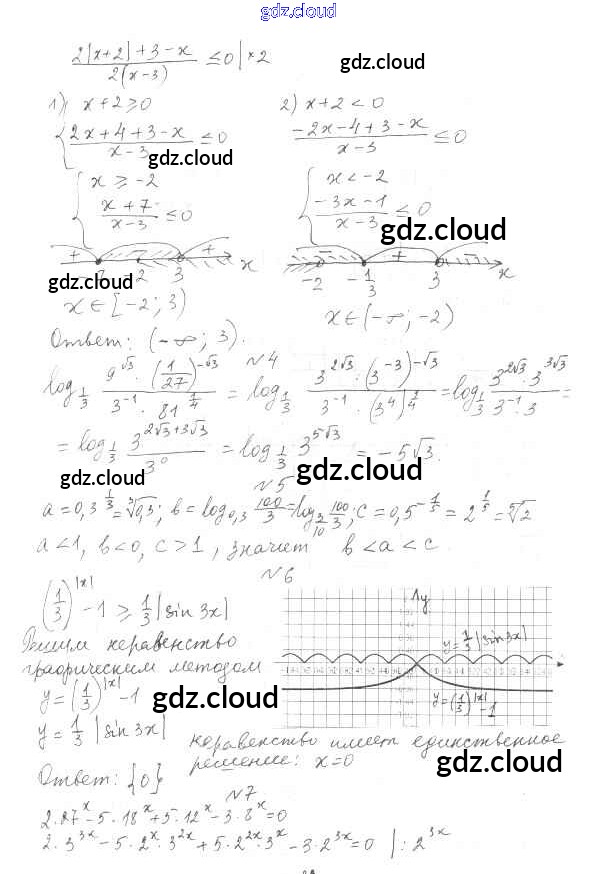 gdz.cloud
(2|x+2|+3-x)/(2(x-3)) ≤ 0 | *2
gdz.cloud
1) x+2 ≥ 0 2) x+2 < 0
{ (2x+4+3-x)/(x-3) ≤ 0 (-2x-4+3-x)/(x-3) ≤ 0
gdz.cloud
{ x ≥ -2 { x < -2
(x+7)/(x-3) ≤ 0 (-3x-1)/(x-3) ≤ 0
gdz.cloud
+ -2 3 + x -2 -1/3 + 3 x
gdz.cloud
x ∈ [-2; 3) x ∈ (-∞; -2)
gdz.cloud
Ответ: (-∞; 3).
№4
log_{1/3} (9^{√3} · (1/27)^{-√3})/(3^{-1} · 81^{1/4}) = log_{1/3} (3^{2√3} · (3^{-3})^{-√3})/(3^{-1} · (3^4)^{1/4}) = log_{1/3} (3^{2√3} · 3^{3√3})/(3^{-1} · 3) =
= log_{1/3} 3^{2√3+3√3}/3^0 = log_{1/3} 3^{5√3} = -5√3.
gdz.cloud gdz.cloud
№5
a = 0,3^{1/3} = ∛0,3; b = log_{0,3} 100/3 = log_{3/10} 100/3; c = 0,5^{-1/5} = 2^{1/5} = ⁵√2
gdz.cloud
a < 1, b < 0, c > 1, значит b < a < c.
№6
(1/3)^{|x|} - 1 ≥ 1/3 |sin 3x|
y
y = 1/3 |sin 3x|
Решим неравенство
графическим методом
y = (1/3)^{|x|} - 1
y = (1/3)^{|x|} - 1
gdz.cloud
y = 1/3 |sin 3x|
неравенство имеет единственное
решение: x = 0
gdz.cloud
Ответ: {0}
gdz.cloud
№7
2·27^x - 5·18^x + 5·12^x - 3·8^x = 0
2·3^{3x} - 5·2^x·3^{2x} + 5·2^{2x}·3^x - 3·2^{3x} = 0 | : 2^{3x}